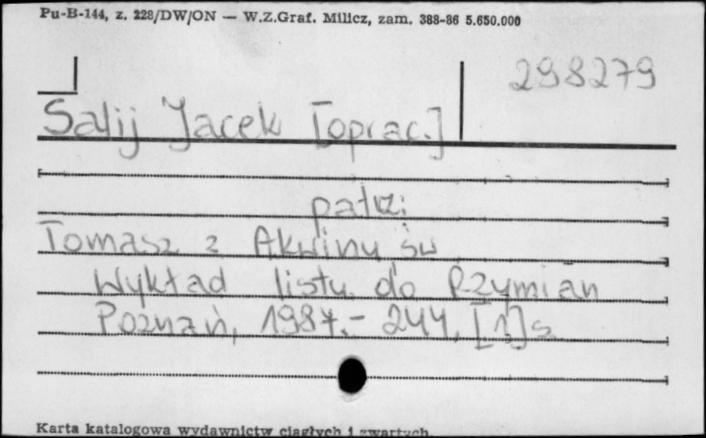 Pu-B-144, z. 228/DW/ON — W.Z.Graf. Milicz, zam. 388-86 5.650.000
298279
Salij Jacek [oprac.]
patrz:
Tomasz z Akwinu św
Wykład listu do Rzymian
Poznań, 1987.- 244, [1]s
Karta katalogowa wydawnictw ciągłych i zwartych.